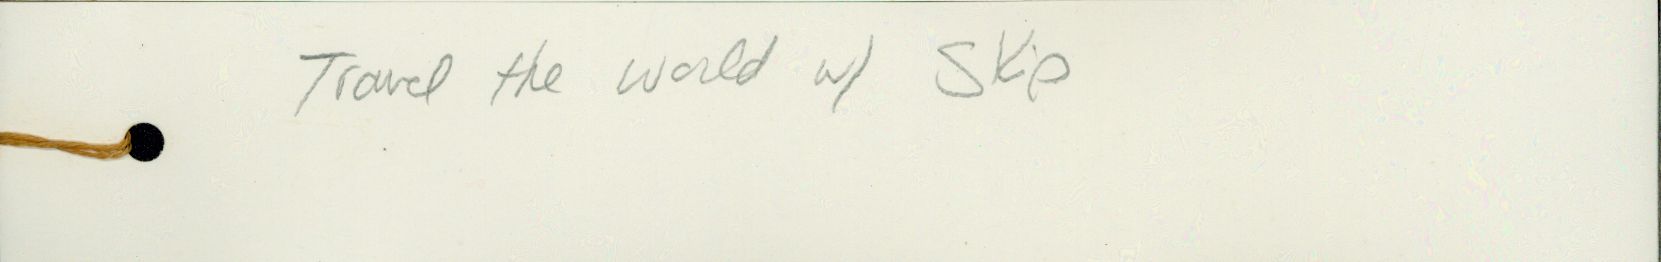 Travel the world w/ Skip